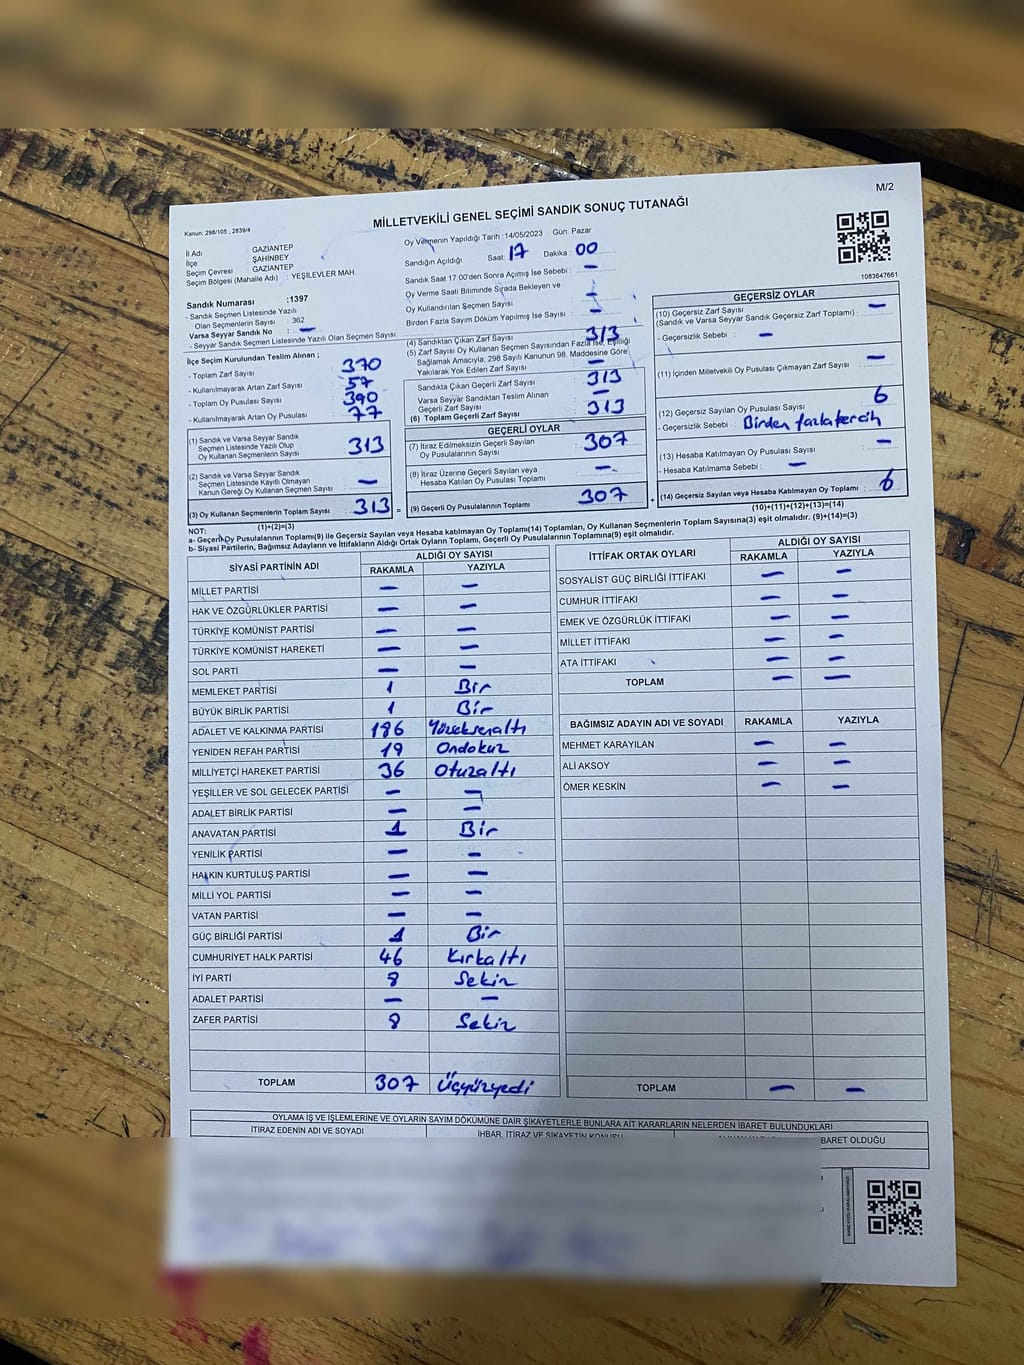 M/2
MİLLETVEKİLİ GENEL SEÇİMİ SANDIK SONUÇ TUTANAĞI
Kanun: 298/105 , 2839/4
İl Adı : GAZİANTEP
İlçe : ŞAHİNBEY
Seçim Çevresi : GAZİANTEP
Seçim Bölgesi (Mahalle Adı) : YEŞİLEVLER MAH.
Oy Vermenin Yapıldığı Tarih :14/05/2023 Gün: Pazar
Sandığın Açıldığı Saat: 17 Dakika : 00
Sandık Saat 17:00'den Sonra Açımış İse Sebebi : –
Oy Verme Saati Bitiminde Sırada Bekleyen ve
Oy Kullandırılan Seçmen Sayısı : –
Birden Fazla Sayım Döküm Yapılmış İse Sayısı : –
1083647661
Sandık Numarası :1397
- Sandık Seçmen Listesinde Yazılı
Olan Seçmenlerin Sayısı : 362
Varsa Seyyar Sandık No : –
- Seyyar Sandık Seçmen Listesinde Yazılı Olan Seçmen Sayısı:
İlçe Seçim Kurulundan Teslim Alınan ;
- Toplam Zarf Sayısı : 370
- Kullanılmayarak Artan Zarf Sayısı : 57
- Toplam Oy Pusulası Sayısı : 390
- Kullanılmayarak Artan Oy Pusulası : 77
(1) Sandık ve Varsa Seyyar Sandık
Seçmen Listesinde Yazılı Olup
Oy Kullanan Seçmenlerin Sayısı : 313
(2) Sandık ve Varsa Seyyar Sandık
Seçmen Listesinde Kayıtlı Olmayan
Kanun Gereği Oy Kullanan Seçmen Sayısı : –
(3) Oy Kullanan Seçmenlerin Toplam Sayısı : 313
(1)+(2)=(3)
(4) Sandıktan Çıkan Zarf Sayısı : 313
(5) Zarf Sayısı Oy Kullanan Seçmen Sayısından Fazla İse, Eşitliği
Sağlamak Amacıyla; 298 Sayılı Kanunun 98. Maddesine Göre
Yakılarak Yok Edilen Zarf Sayısı : –
Sandıkta Çıkan Geçerli Zarf Sayısı : 313
Varsa Seyyar Sandıktan Teslim Alınan
Geçerli Zarf Sayısı : –
(6) Toplam Geçerli Zarf Sayısı : 313
GEÇERLİ OYLAR
(7) İtiraz Edilmeksizin Geçerli Sayılan
Oy Pusulalarının Sayısı : 307
(8) İtiraz Üzerine Geçerli Sayılan veya
Hesaba Katılan Oy Pusulası Toplamı : –
= (9) Geçerli Oy Pusulalarının Toplamı : 307 +
GEÇERSİZ OYLAR
(10) Geçersiz Zarf Sayısı
(Sandık ve Varsa Seyyar Sandık Geçersiz Zarf Toplamı) : –
- Geçersizlik Sebebi : –
(11) İçinden Milletvekili Oy Pusulası Çıkmayan Zarf Sayısı : –
(12) Geçersiz Sayılan Oy Pusulası Sayısı : 6
- Geçersizlik Sebebi : Birden fazla tercih
(13) Hesaba Katılmayan Oy Pusulası Sayısı : –
- Hesaba Katılmama Sebebi : –
(14) Geçersiz Sayılan veya Hesaba Katılmayan Oy Toplamı : 6
(10)+(11)+(12)+(13)=(14)
NOT:
a- Geçerli Oy Pusulalarının Toplamı(9) ile Geçersiz Sayılan veya Hesaba katılmayan Oy Toplamı(14) Toplamları, Oy Kullanan Seçmenlerin Toplam Sayısına(3) eşit olmalıdır. (9)+(14)=(3)
b- Siyasi Partilerin, Bağımsız Adayların ve İttifakların Aldığı Ortak Oyların Toplamı, Geçerli Oy Pusulalarının Toplamına(9) eşit olmalıdır.
SİYASİ PARTİNİN ADI ALDIĞI OY SAYISI
RAKAMLA YAZIYLA
MİLLET PARTİSİ – –
HAK VE ÖZGÜRLÜKLER PARTİSİ – –
TÜRKİYE KOMÜNİST PARTİSİ – –
TÜRKİYE KOMÜNİST HAREKETİ – –
SOL PARTİ – –
MEMLEKET PARTİSİ 1 Bir
BÜYÜK BİRLİK PARTİSİ 1 Bir
ADALET VE KALKINMA PARTİSİ 186 Yüzseksenaltı
YENİDEN REFAH PARTİSİ 19 Ondokuz
MİLLİYETÇİ HAREKET PARTİSİ 36 Otuzaltı
YEŞİLLER VE SOL GELECEK PARTİSİ – –
ADALET BİRLİK PARTİSİ – –
ANAVATAN PARTİSİ 1 Bir
YENİLİK PARTİSİ – –
HALKIN KURTULUŞ PARTİSİ – –
MİLLİ YOL PARTİSİ – –
VATAN PARTİSİ – –
GÜÇ BİRLİĞİ PARTİSİ 1 Bir
CUMHURİYET HALK PARTİSİ 46 Kırkaltı
İYİ PARTİ 8 Sekiz
ADALET PARTİSİ – –
ZAFER PARTİSİ 8 Sekiz
TOPLAM 307 Üçyüzyedi
İTTİFAK ORTAK OYLARI ALDIĞI OY SAYISI
RAKAMLA YAZIYLA
SOSYALİST GÜÇ BİRLİĞİ İTTİFAKI – –
CUMHUR İTTİFAKI – –
EMEK VE ÖZGÜRLÜK İTTİFAKI – –
MİLLET İTTİFAKI – –
ATA İTTİFAKI – –
TOPLAM – –
BAĞIMSIZ ADAYIN ADI VE SOYADI RAKAMLA YAZIYLA
MEHMET KARAYILAN – –
ALİ AKSOY – –
ÖMER KESKİN – –
TOPLAM – –
OYLAMA İŞ VE İŞLEMLERİNE VE OYLARIN SAYIM DÖKÜMÜNE DAİR ŞİKAYETLERLE BUNLARA AİT KARARLARIN NELERDEN İBARET BULUNDUKLARI
İTİRAZ EDENİN ADI VE SOYADI İHBAR, İTİRAZ VE ŞİKAYETİN KONUSU BARET OLDUĞU